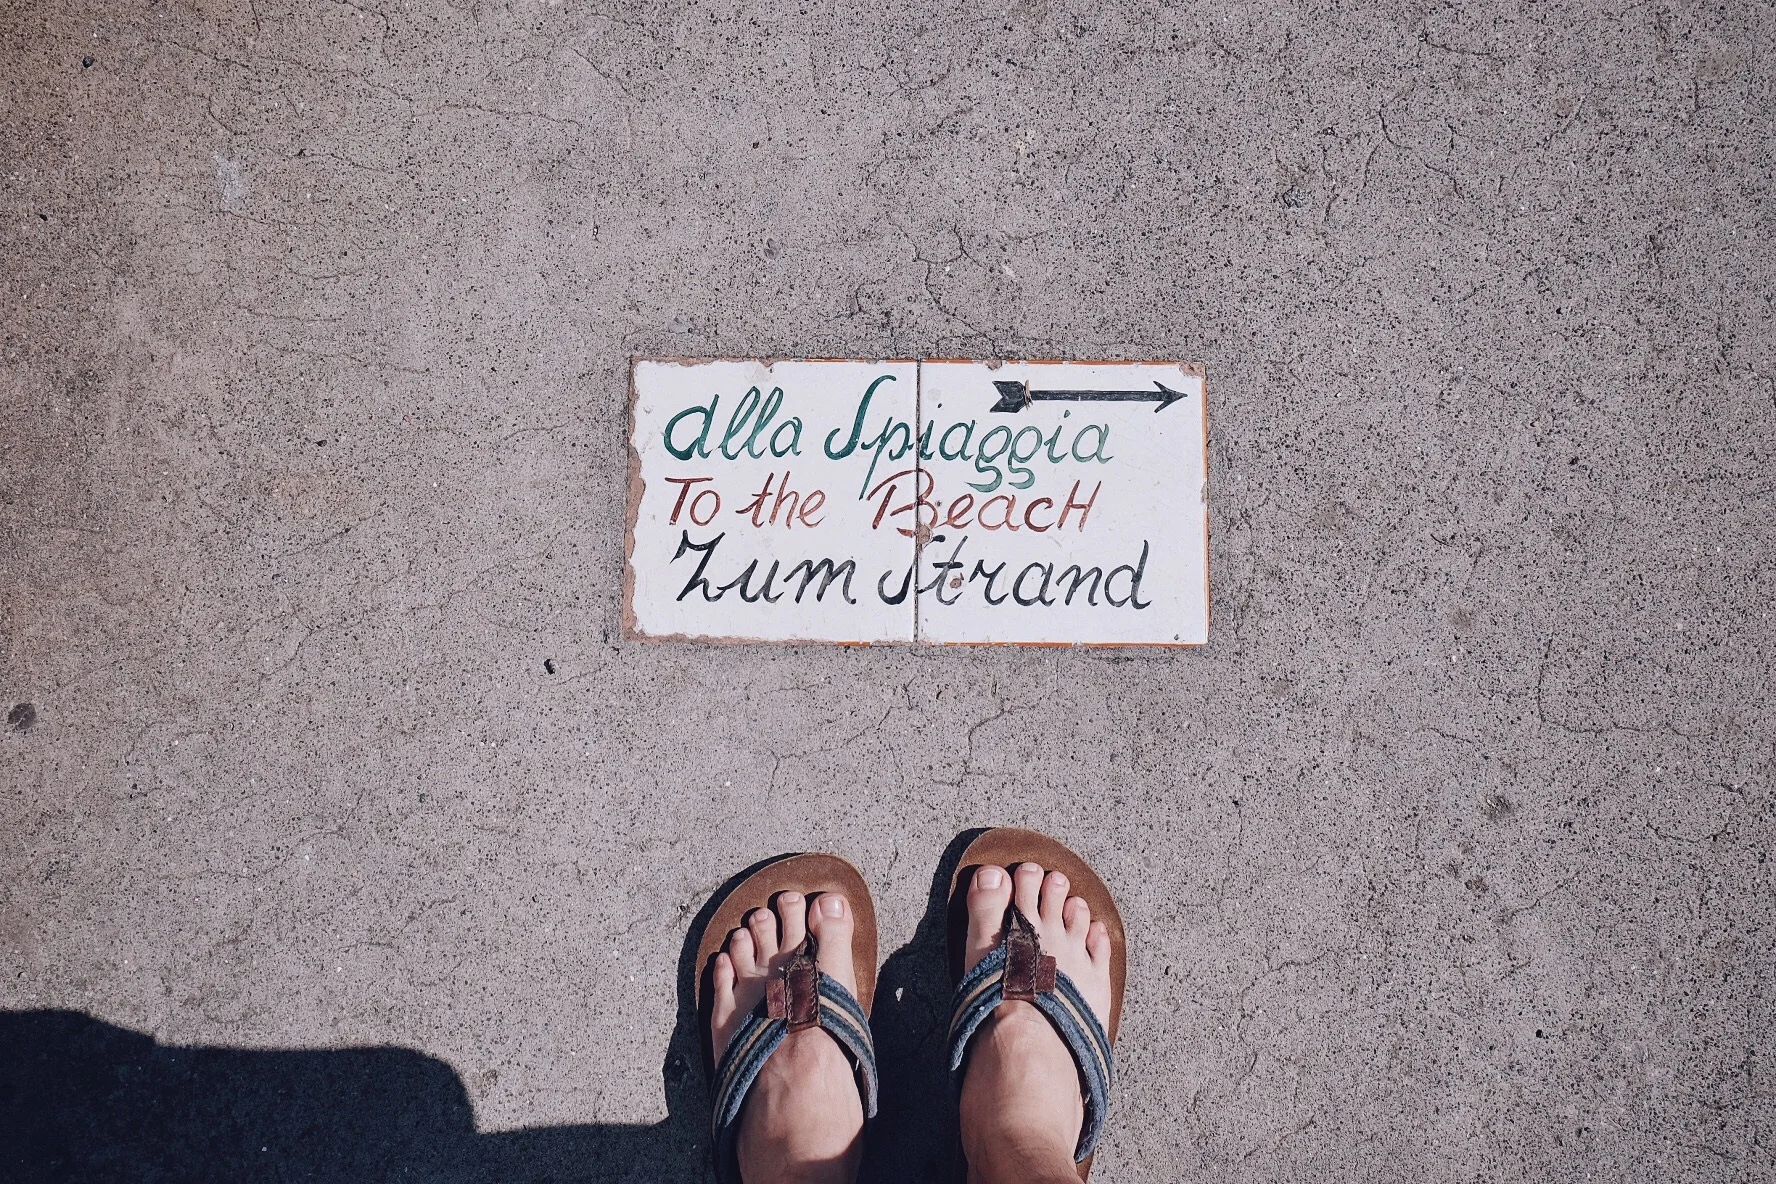 alla Spiaggia
To the BeacH
Zum Strand